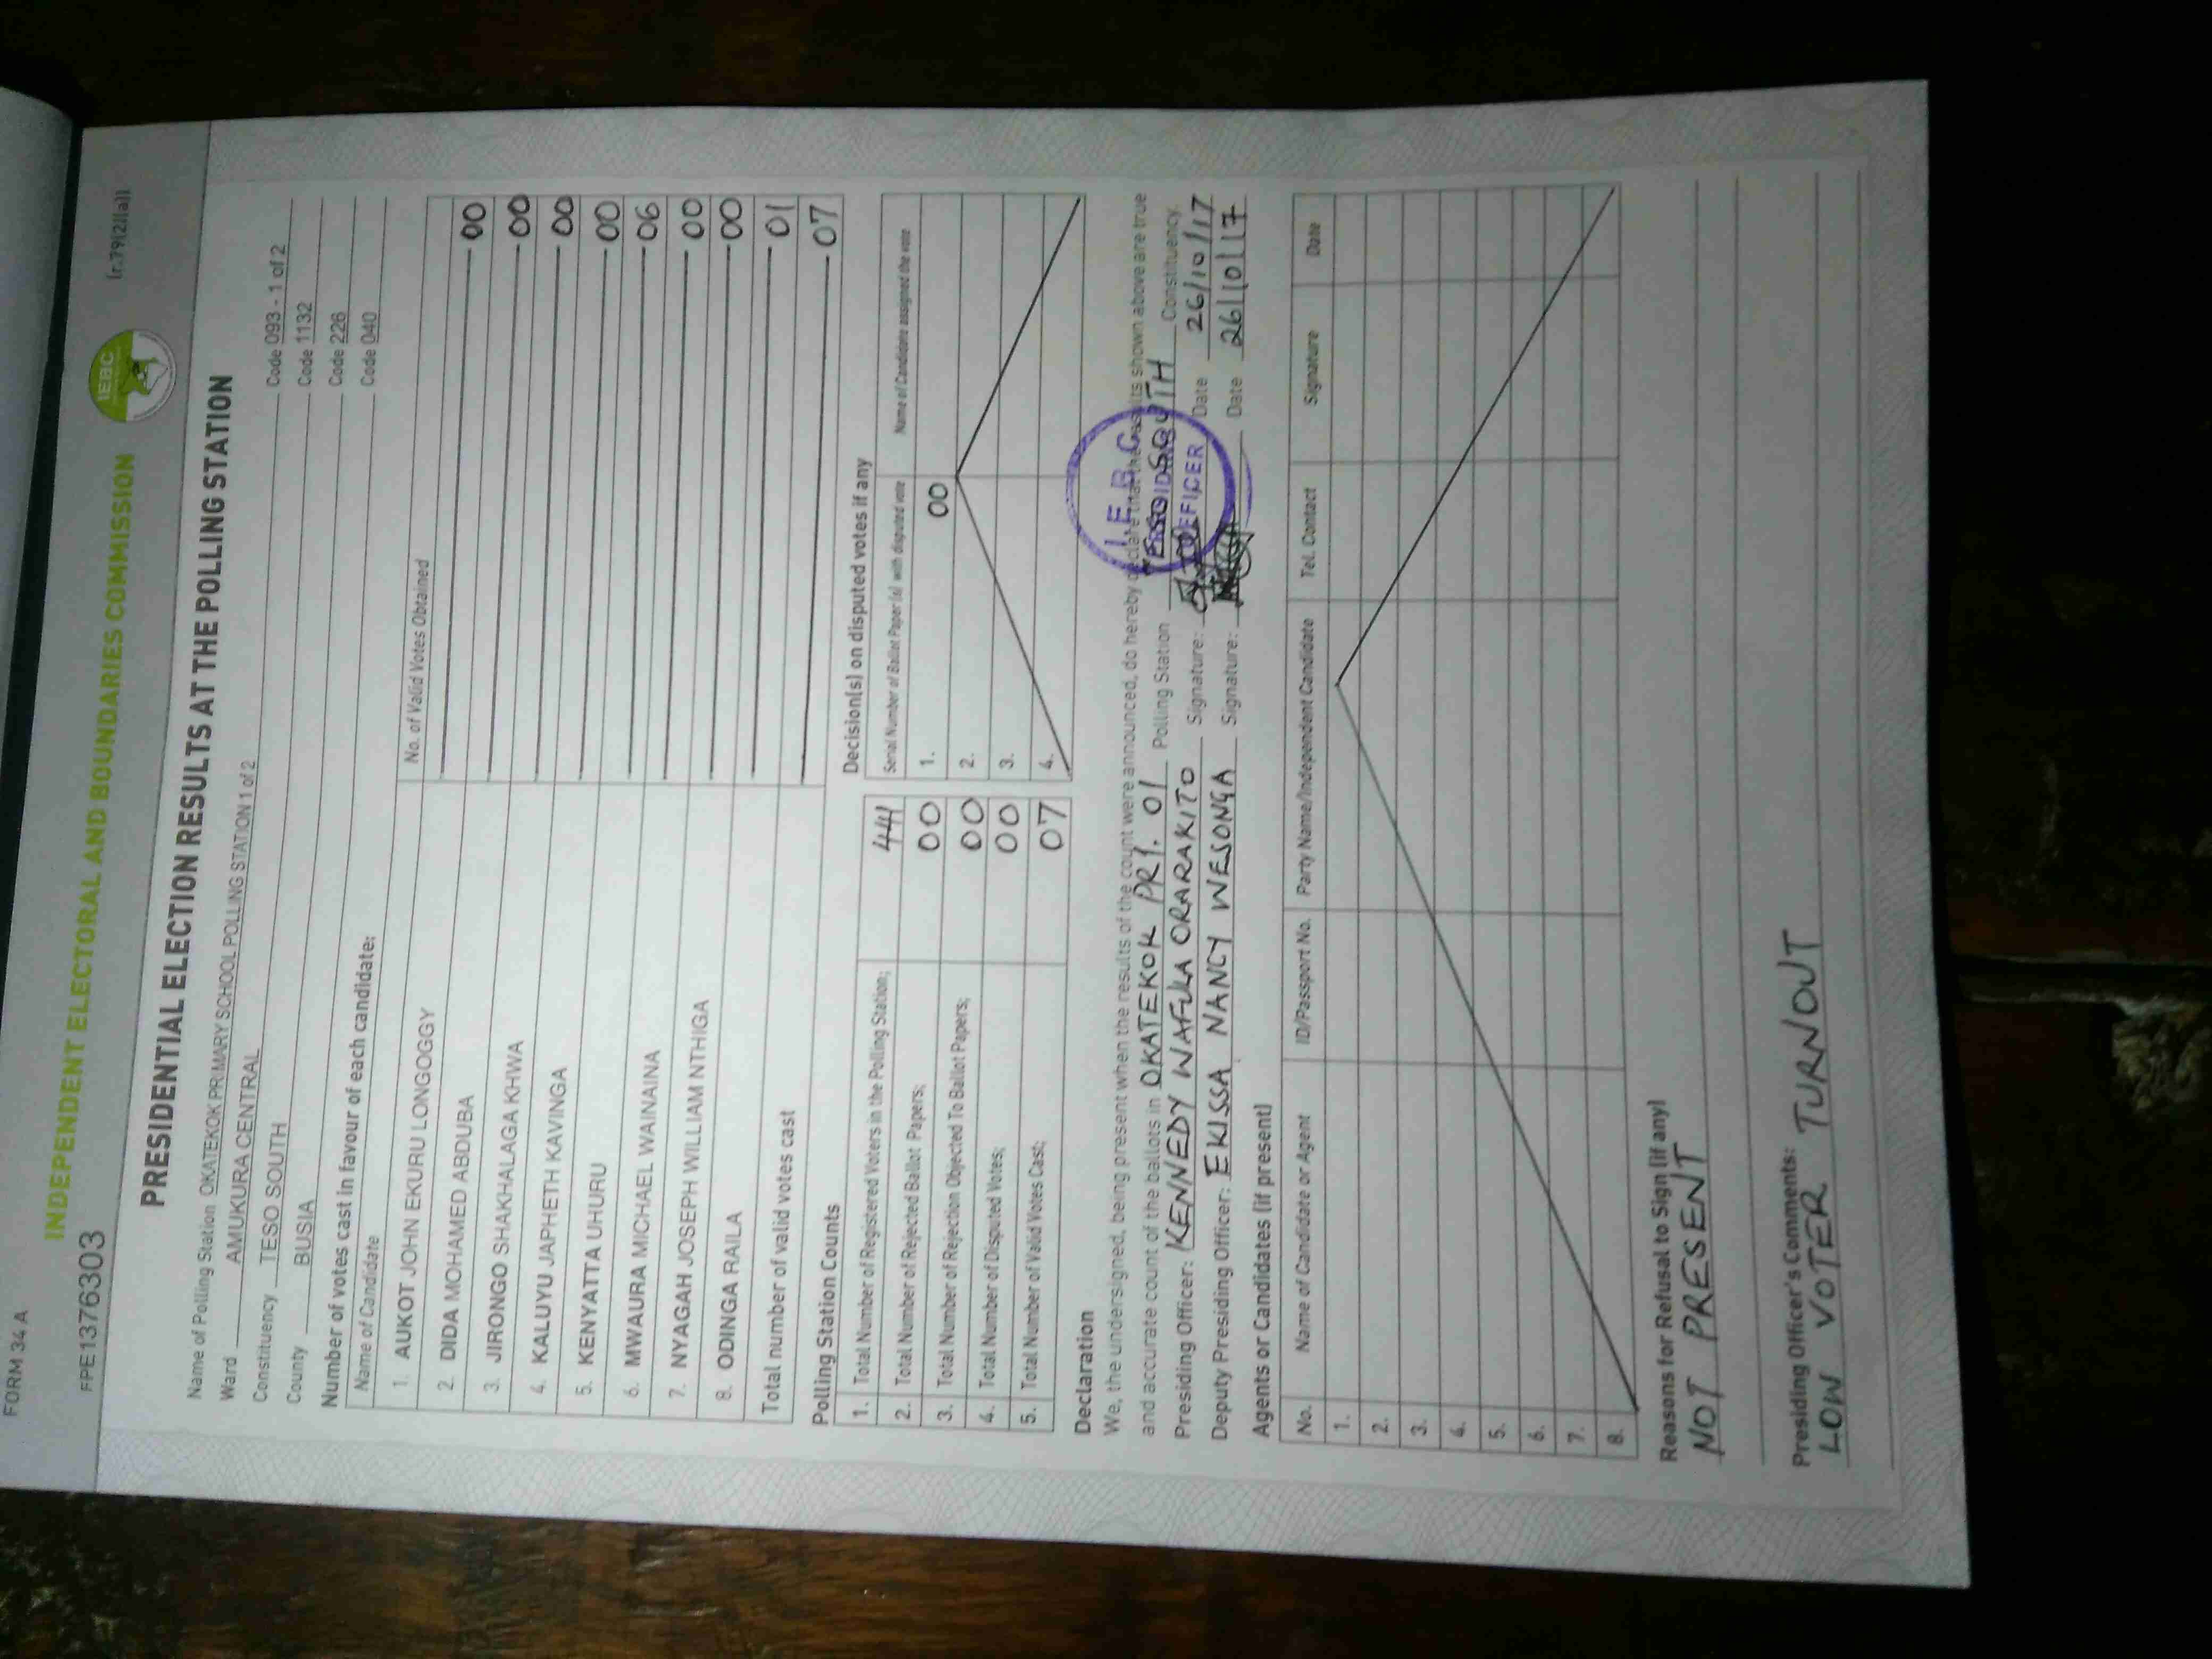 FORM 34 A
(r.79(2)(a))
INDEPENDENT ELECTORAL AND BOUNDARIES COMMISSION
IEBC
FPE1376303
PRESIDENTIAL ELECTION RESULTS AT THE POLLING STATION
Name of Polling Station OKATEKOK PRIMARY SCHOOL POLLING STATION 1 of 2 Code 093 - 1 of 2
Ward AMUKURA CENTRAL Code 1132
Constituency TESO SOUTH Code 226
County BUSIA Code 040
Number of votes cast in favour of each candidate:
Name of Candidate No. of Valid Votes Obtained
1. AUKOT JOHN EKURU LONGOGGY 00
2. DIDA MOHAMED ABDUBA 00
3. JIRONGO SHAKHALAGA KHWA 00
4. KALUYU JAPHETH KAVINGA 00
5. KENYATTA UHURU 06
6. MWAURA MICHAEL WAINAINA 00
7. NYAGAH JOSEPH WILLIAM NTHIGA 00
8. ODINGA RAILA 01
Total number of valid votes cast 07
Polling Station Counts
1. Total Number of Registered Voters in the Polling Station; 441
2. Total Number of Rejected Ballot Papers; 00
3. Total Number of Rejection Objected To Ballot Papers; 00
4. Total Number of Disputed Votes; 00
5. Total Number of Valid Votes Cast; 07
Decision(s) on disputed votes if any
Serial Number of Ballot Paper (s) with disputed vote Name of Candidate assigned the vote
1. 00
2.
3.
4.
Declaration
We, the undersigned, being present when the results of the count were announced, do hereby declare that the results shown above are true
and accurate count of the ballots in OKATEKOK PRY. 01 Polling Station TESO SOUTH Constituency.
Presiding Officer: KENNEDY WAFULA ORARAKITO Signature: Date 26/10/17
Deputy Presiding Officer: EKISSA NANCY WESONGA Signature: Date 26/10/17
I.E.B.C
OFFICER
Agents or Candidates (if present)
No. Name of Candidate or Agent ID/Passport No. Party Name/Independent Candidate Tel. Contact Signature Date
1.
2.
3.
4.
5.
6.
7.
8.
Reasons for Refusal to Sign (if any)
NOT PRESENT
Presiding Officer's Comments:
LOW VOTER TURNOUT